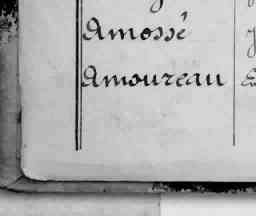 Amossé
Amoureau